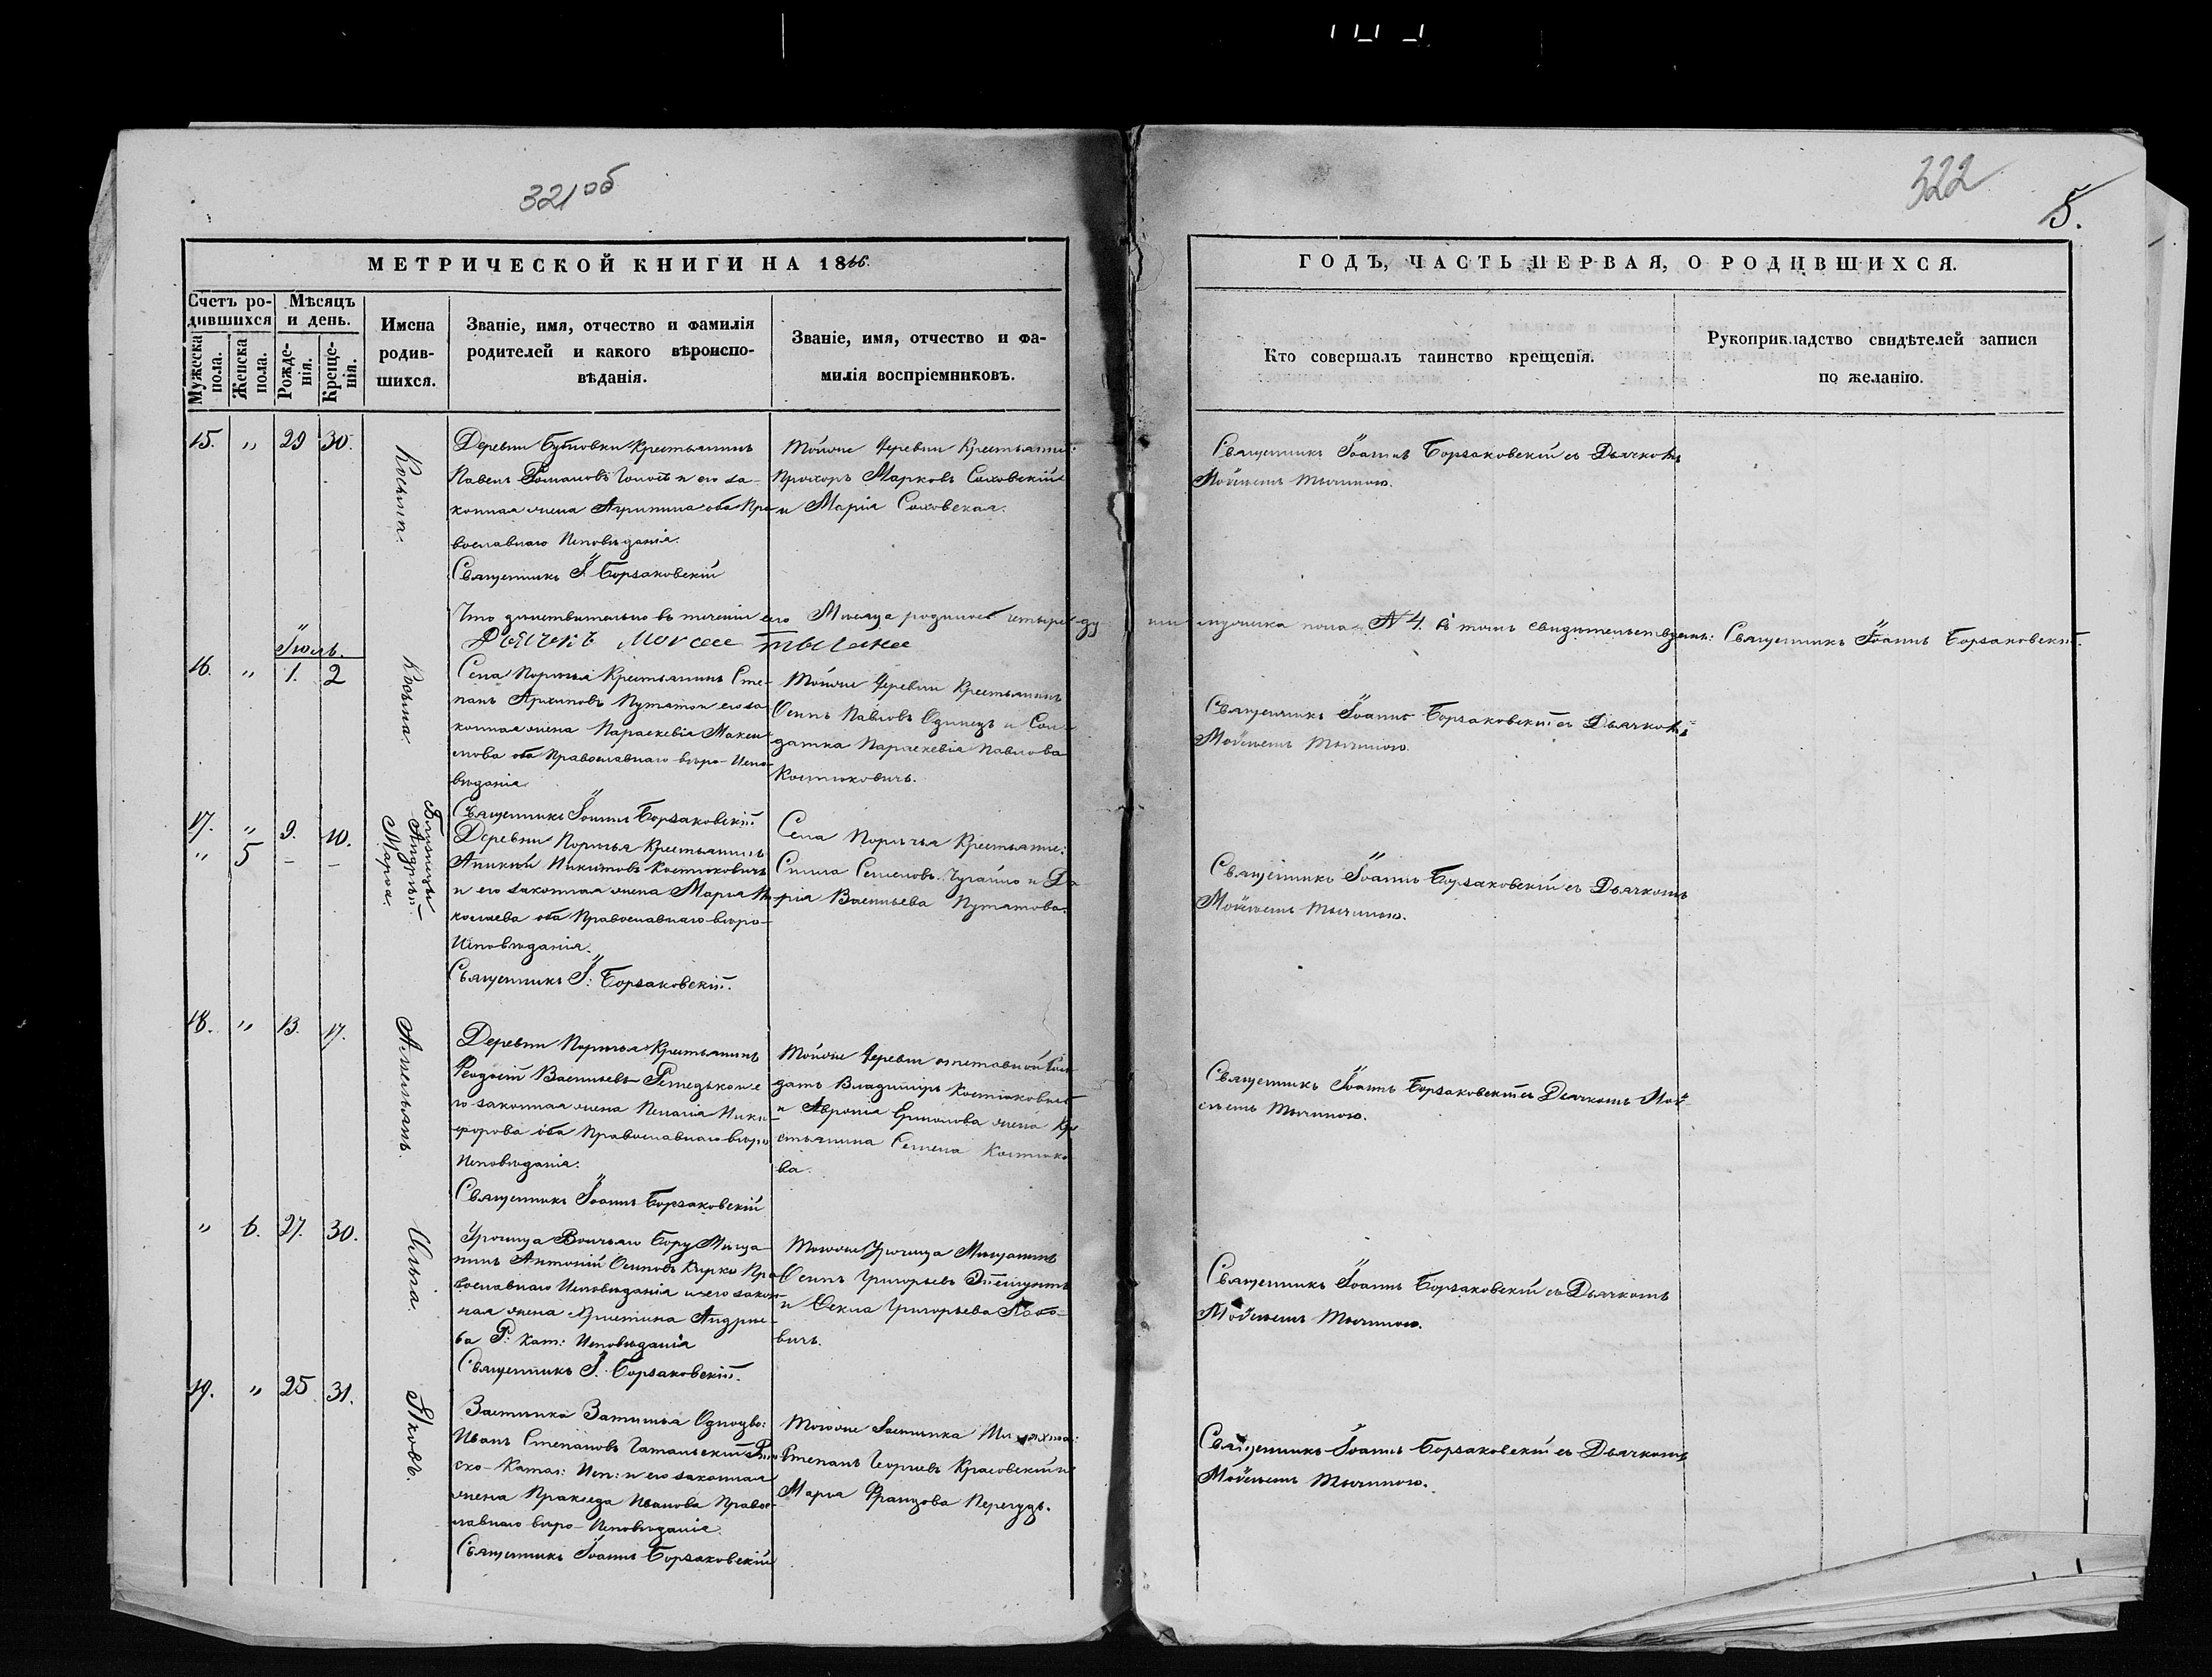 321об
322
5.
МЕТРИЧЕСКОЙ КНИГИ НА 1866.
ГОДЪ, ЧАСТЬ ПЕРВАЯ, О РОДИВШИХСЯ.
Счетъ ро-
дившихся
Мужеска пола.
Женска пола.
Мѣсяцъ
и день.
Рожде-
нія.
Креще-
нія.
Имена
родив-
шихся.
Званіе, имя, отчество и фамилія
родителей и какого вѣроиспо-
вѣданія.
Званіе, имя, отчество и фа-
милія воспріемниковъ.
Кто совершалъ таинство крещенія.
Рукоприкладство свидѣтелей записи
по желанію.
15. " 29 30.
Косьма.
Деревни Бутовки Крестьянинъ
Павелъ Романовъ и его за-
конная жена Агрипина оба Пра
вославнаго Исповѣданія.
Священникъ І Борзаковскій
Тойже Деревни Крестьяне:
Прохоръ Марковъ Саховскій
и Марія Саховская.
Священникъ Іоаннъ Борзаковскій съ Дьячкомъ
Мойсеемъ Тычиною.
Что дѣйствительно въ теченіи сего Мѣсяца родилось четыре ду ши мужеска пола N 4. въ томъ свидѣтельствуемъ: Священникъ Іоаннъ Борзаковскій.
Дячекъ Моисей Тычина
Іюль.
16. " 1. 2
Косьма.
Села Поричья Крестьянинъ Сте-
панъ Архиповъ Путято и его за
конная жена Параскевія Макси
мова оба Православнаго вѣро-Испо-
вѣданія
Священникъ Іоаннъ Борзаковскій.
Тойже Деревни Крестьянинъ
Осипъ Павловъ Одинецъ и Сол-
датка Параскевія Павлова
Костюковичъ.
Священникъ Іоаннъ Борзаковскій съ Дьячкомъ
Мойсеемъ Тычиною.
17. " 9. 10.
" 5 - -
Близнецы
Андрей.
Марѳа.
Деревни Поричья Крестьянинъ
Аникій Никитовъ Костюковичъ
и его законная жена Марія Ни
колаева оба Православнаго вѣро-
Исповѣданія.
Священникъ І: Борзаковскій.
Села Поричья Крестьяне:
Семеновъ и Да
рія Васильева Путятова.
Священникъ Іоаннъ Борзаковскій съ Дьячкомъ
Мойсеемъ Тычиною.
18. " 13. 17.
Емельянъ.
Деревни Поричья Крестьянинъ
Ѳеодосій Васильевъ и е
го законная жена Пелагія Ники
форова оба Православнаго вѣро
Исповѣданія.
Священникъ Іоаннъ Борзаковскій
Тойже Деревни отставной Сол
датъ Владиміръ Костюковичъ
и Аѳронія Ермолова жена Кре
стьянина Семена Костюко
ва.
Священникъ Іоаннъ Борзаковскій съ Дьячкомъ Мой-
сеемъ Тычиною.
" 6. 27. 30.
Юлія.
Урочища Волчьяго Бору Мѣща-
нинъ Антоній Осиповъ Кирко Пра
вославнаго Исповѣданія и его закон
ная жена Христина Андрее-
ва Р: Кат: Исповѣданія
Священникъ І. Борзаковскій.
Тогоже Урочища Мѣщанинъ
Осипъ Григорьевъ
и Ѳекла Григорьева
вичъ.
Священникъ Іоаннъ Борзаковскій съ Дьячкомъ
Мойсеемъ Тычиною.
19. " 25 31.
Яковъ.
Застѣнка Затишья Однодво:
Иванъ Степановъ Рим
ско-Катол: Исп: и его законная
жена Пракседа Иванова Право-
славнаго вѣро-Исповѣданія.
Священникъ Іоаннъ Борзаковскій
Тогоже Застѣнка
Степанъ Георгіевъ Красовскій и
Марія Францова Перегудъ.
Священникъ Іоаннъ Борзаковскій съ Дьячкомъ
Мойсеемъ Тычиною.